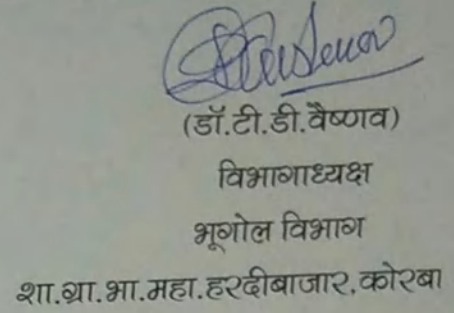 (डॉ.टी.डी.वैष्णव)
विभागाध्यक्ष
भूगोल विभाग
शा.ग्रा.भा.महा.हरदीबाजार,कोरबा